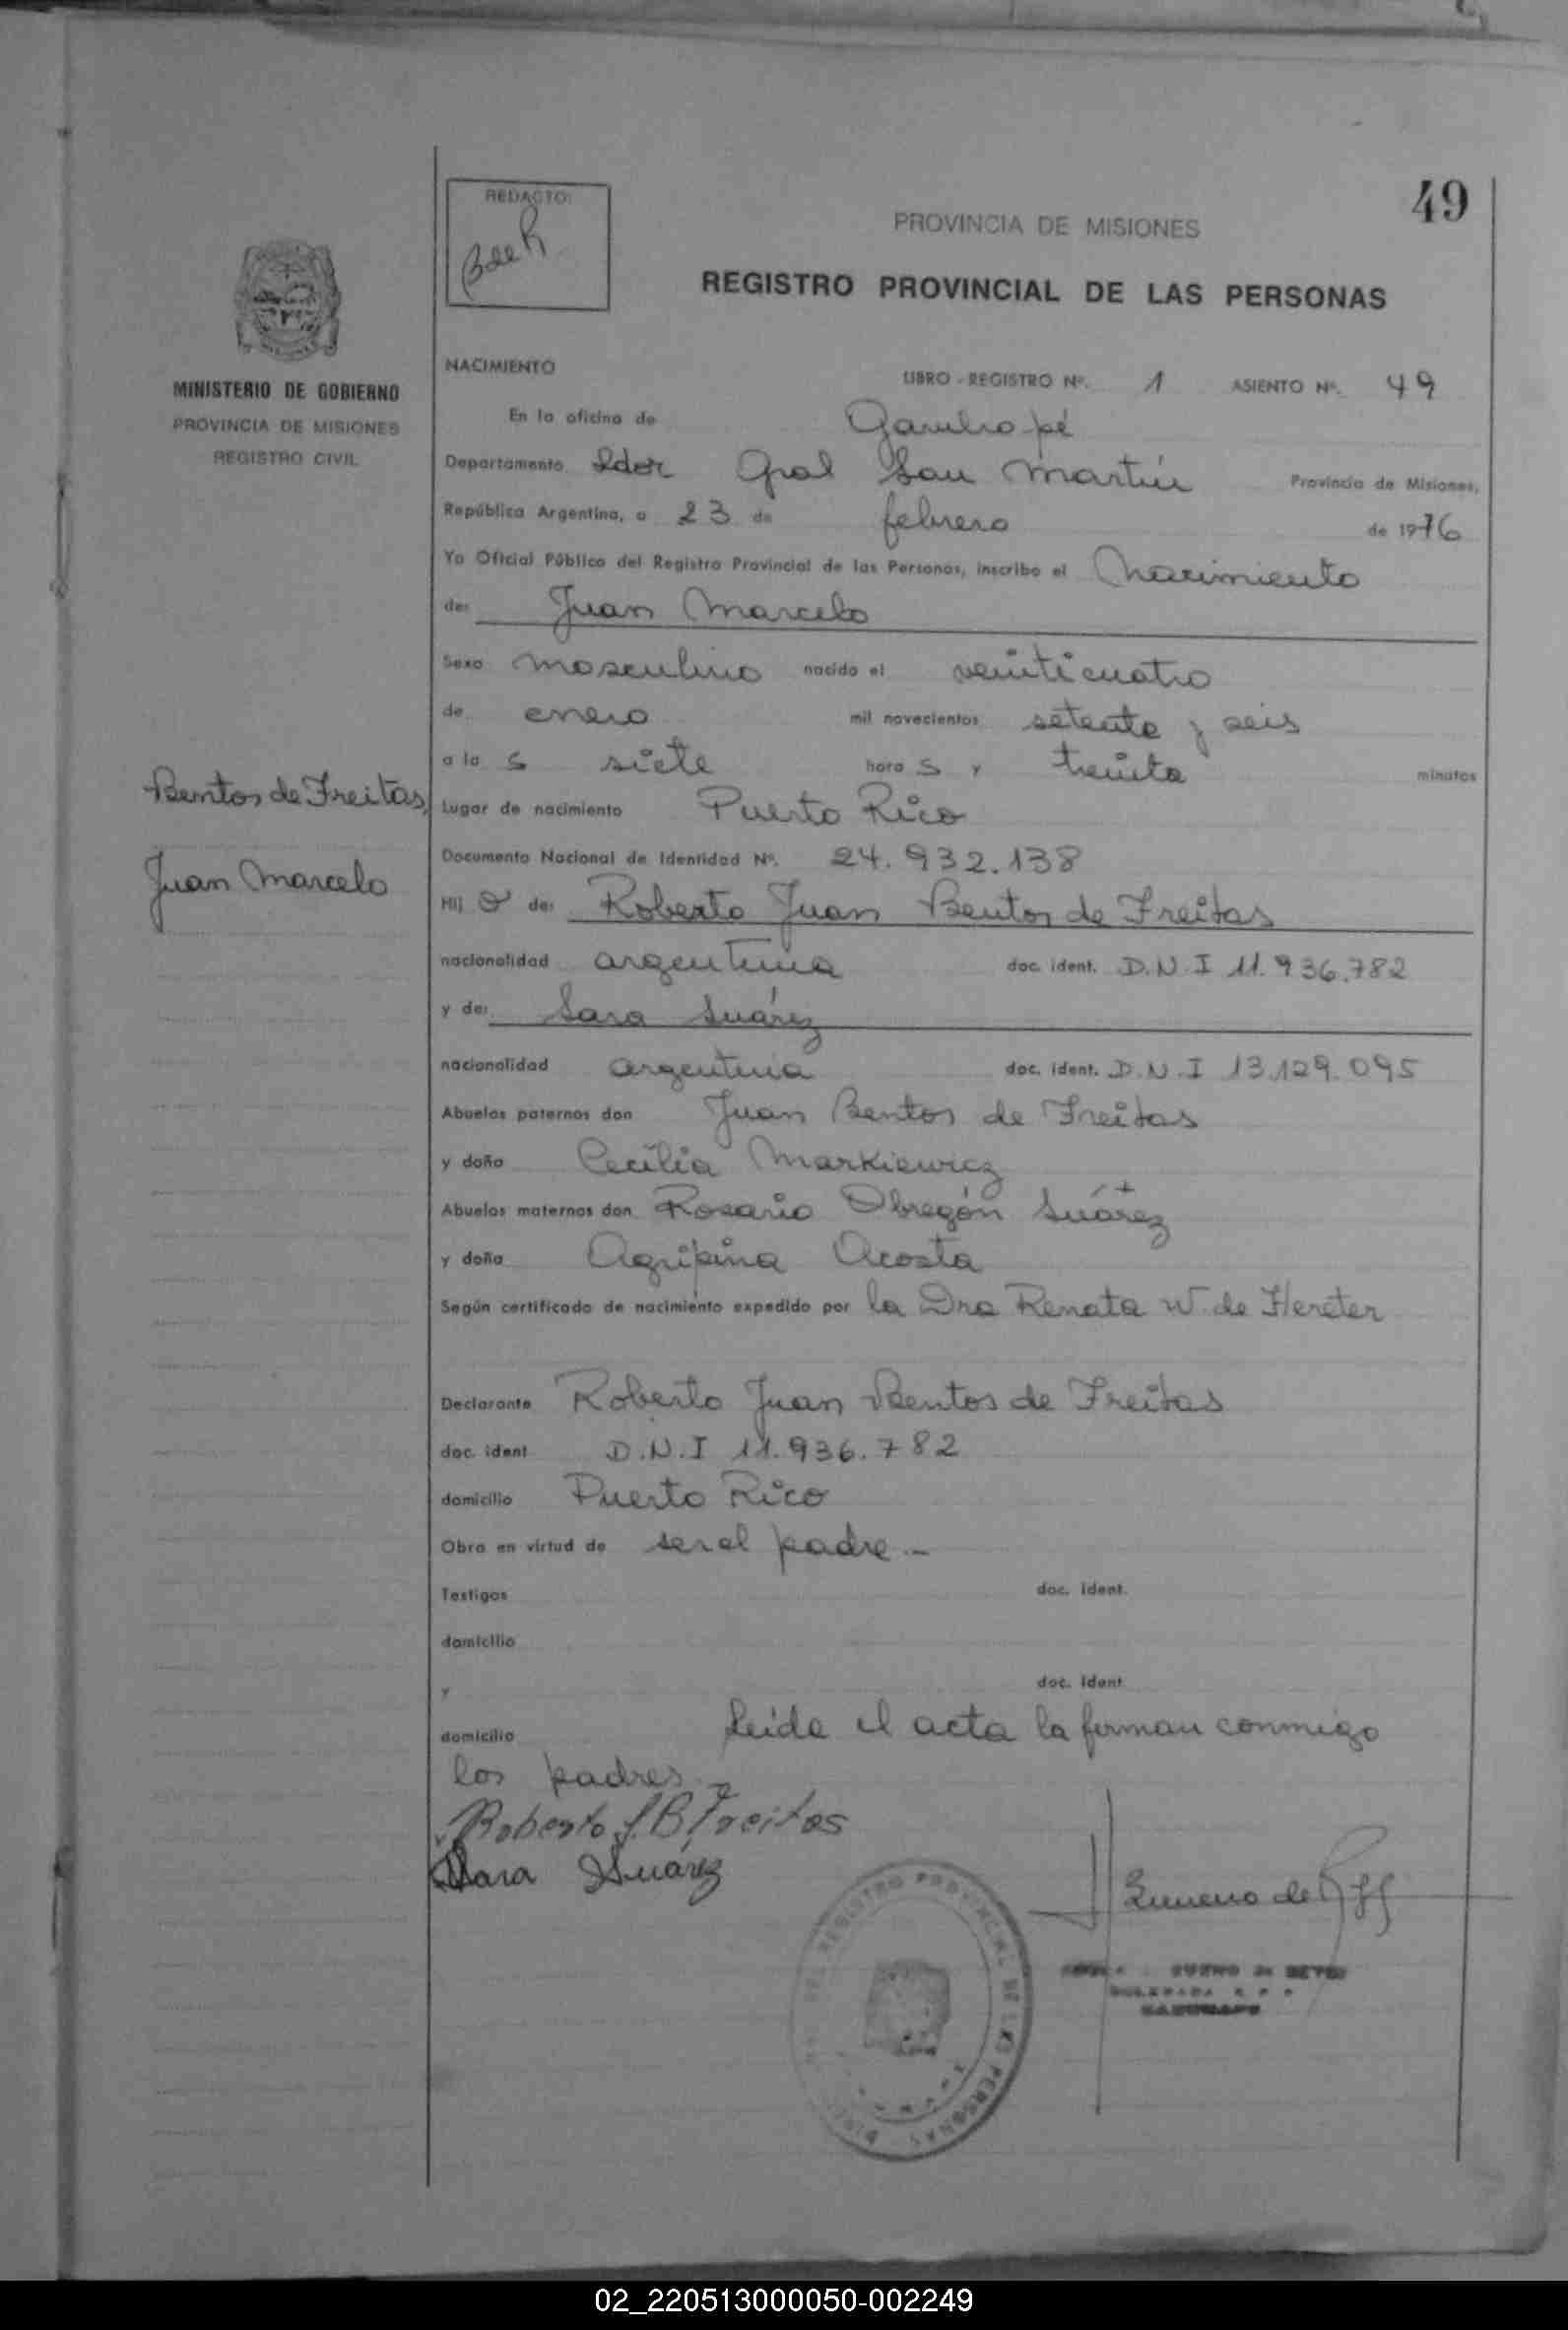 49
REDACTO:
PROVINCIA DE MISIONES
REGISTRO PROVINCIAL DE LAS PERSONAS
MINISTERIO DE GOBIERNO
PROVINCIA DE MISIONES
REGISTRO CIVIL
NACIMIENTO
LIBRO - REGISTRO Nº. 1 ASIENTO Nº. 49
En la oficina de Garuhapé
Departamento Ldor Gral San Martín Provincia de Misiones,
República Argentina, a 23 de febrero de 1976
Yo Oficial Público del Registro Provincial de las Personas, inscribo el Nacimiento
de: Juan Marcelo
Sexo masculino nacido el veinticuatro
de enero mil novecientos setenta y seis
a la s siete hora s y treinta minutos
Bentos de Freitas,
Juan Marcelo
Lugar de nacimiento Puerto Rico
Documento Nacional de Identidad Nº. 24.932.138
Hij o de: Roberto Juan Bentos de Freitas
nacionalidad argentina doc. ident. D.N.I 11.936.782
y de: Sara Suárez
nacionalidad argentina doc. ident. D.N.I 13.129.095
Abuelos paternos don Juan Bentos de Freitas
y doña Cecilia Markiewicz
Abuelos maternos don Rosario Obregón Suárez +
y doña Agripina Acosta
Según certificado de nacimiento expedido por la Dra Renata W. de Hereter
Declarante Roberto Juan Bentos de Freitas
doc. ident D.N.I 11.936.782
domicilio Puerto Rico
Obra en virtud de ser el padre.-
Testigos doc. ident.
domicilio
y doc. ident
domicilio Leída el acta la firman conmigo
los padres.-
Roberto J. B Freitas
Sara Suárez
REGISTRO PROVINCIAL DE LAS PERSONAS
02_220513000050-002249